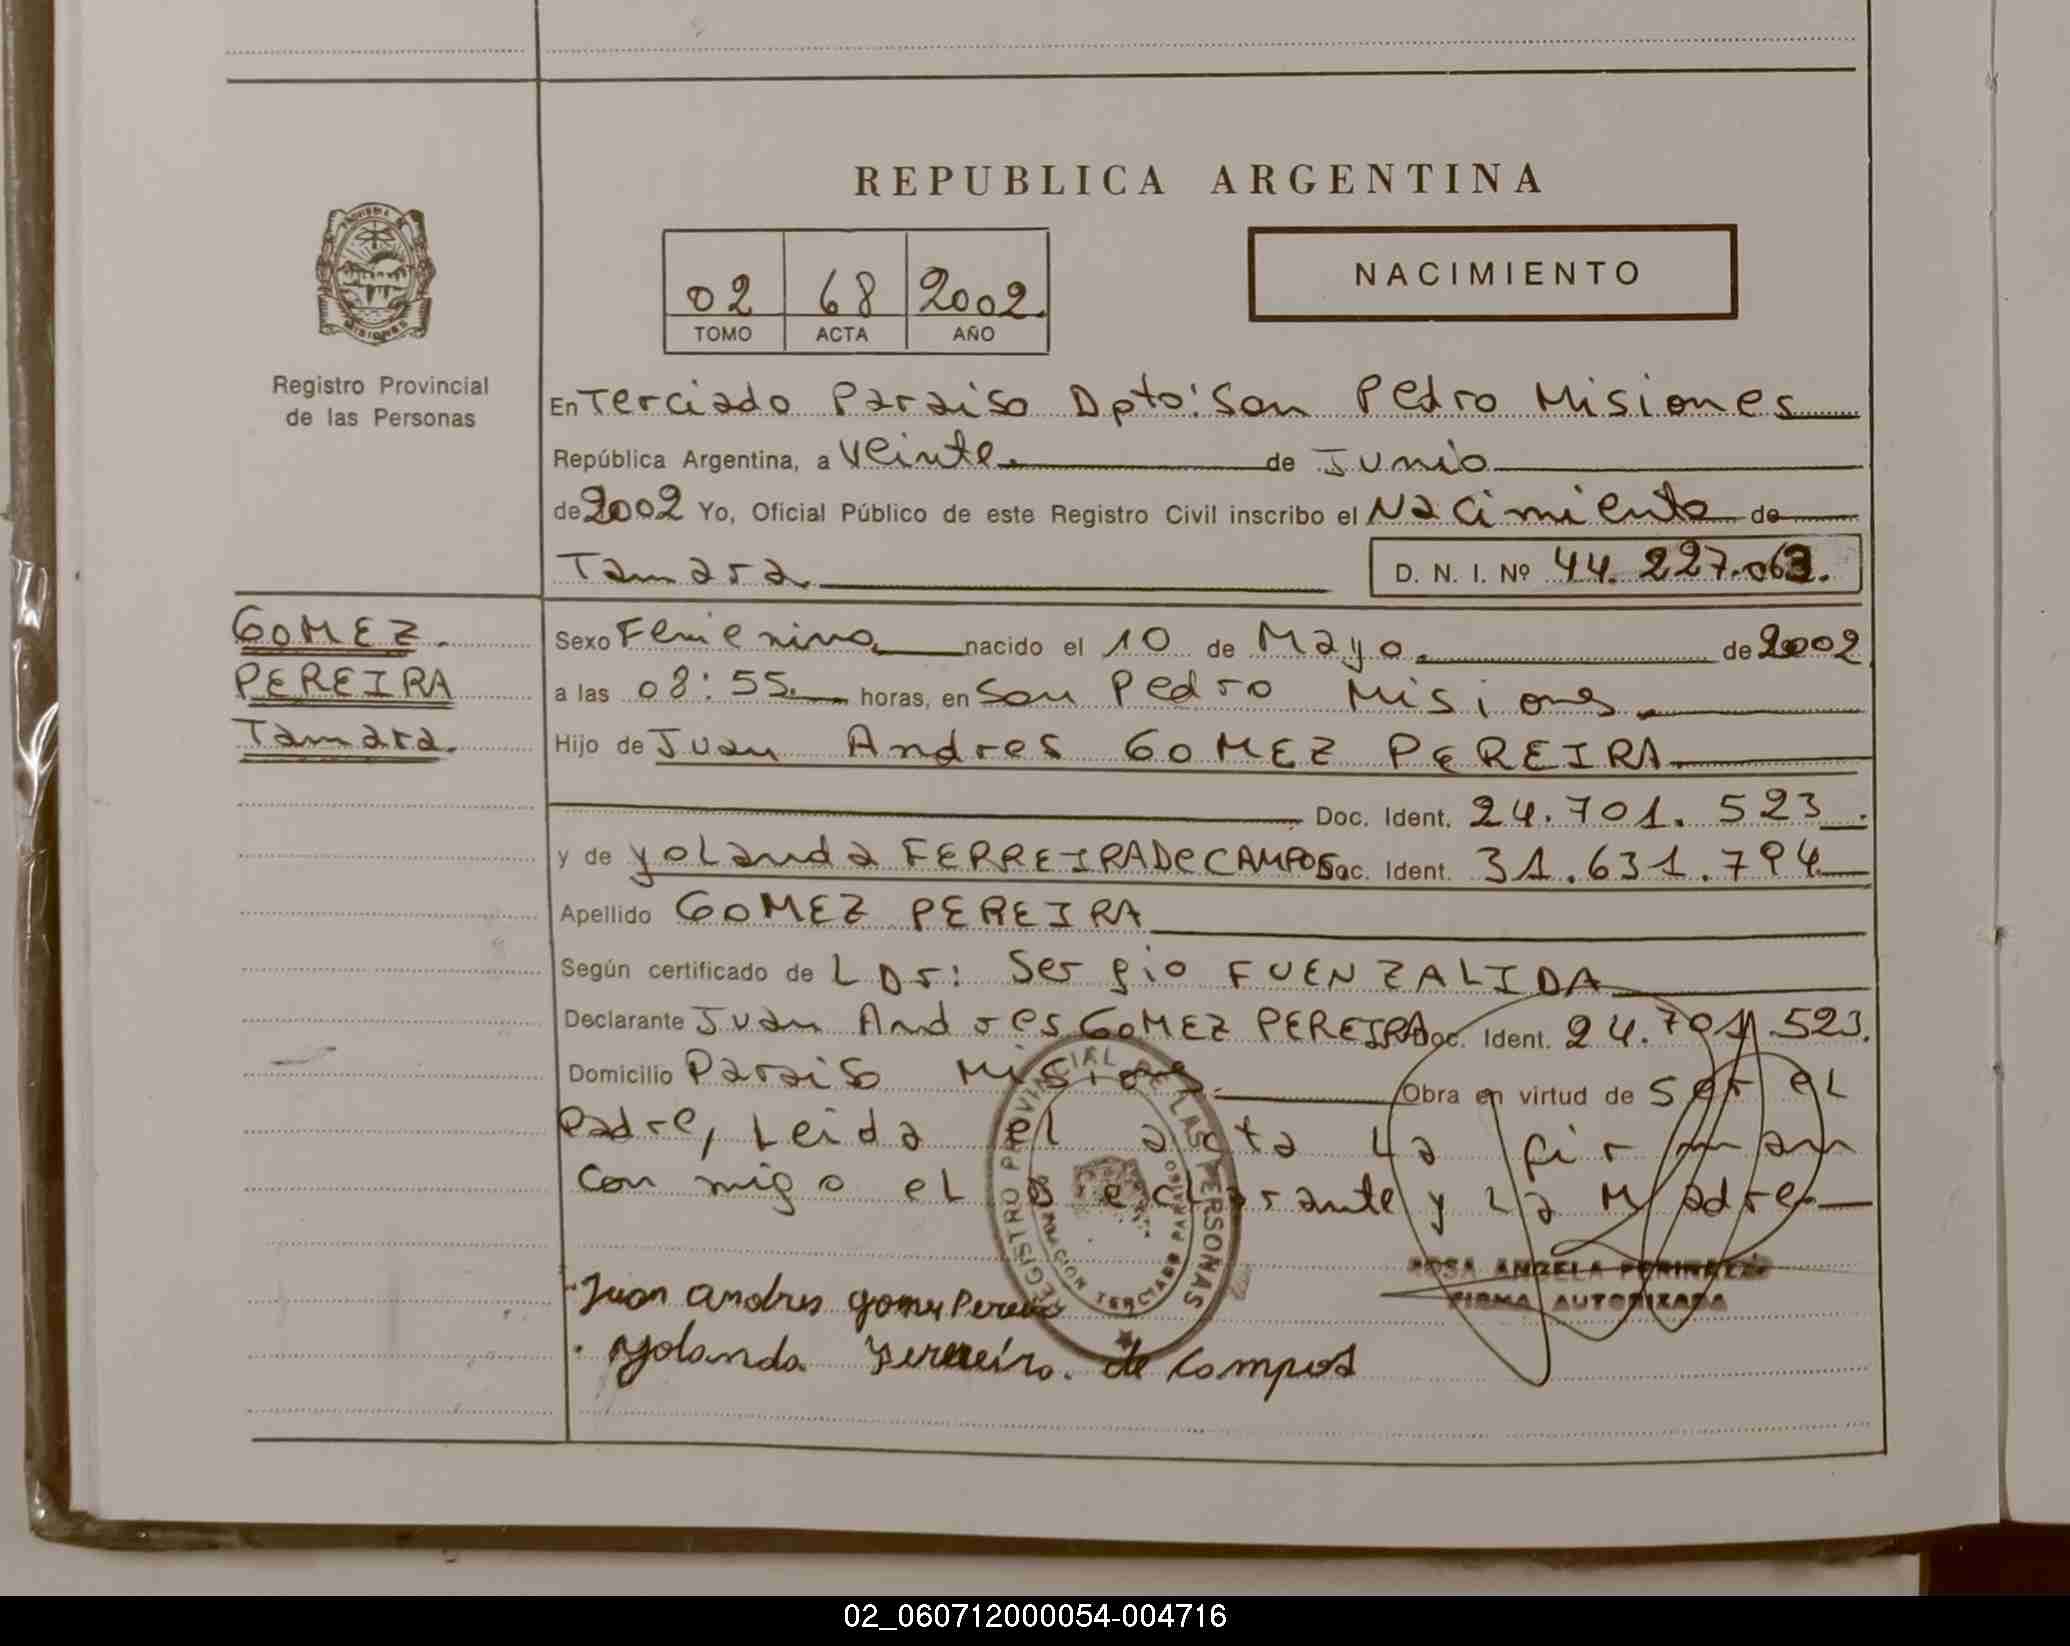 REPUBLICA ARGENTINA
02 68 2002.
TOMO ACTA AÑO
NACIMIENTO
PROVINCIA DE MISIONES
Registro Provincial
de las Personas
En Terciado Paraiso Dpto: San Pedro Misiones
República Argentina, a veinte. de Junio
de 2002 Yo, Oficial Público de este Registro Civil inscribo el Nacimiento de
Tamara. D. N. I. Nº 44.227.063.
GOMEZ
PEREIRA
Tamara.
Sexo Femenino nacido el 10 de Mayo. de 2002
a las 08:55. horas, en San Pedro Misiones.
Hijo de Juan Andres GOMEZ PEREIRA
Doc. Ident. 24.701.523.
y de yolanda FERREIRA De CAMPOS Doc. Ident. 31.631.794
Apellido GOMEZ PEREIRA
Según certificado de L Dr: Sergio FUENZALIDA
Declarante Juan Andres GOMEZ PEREIRA Doc. Ident. 24.701.523.
Domicilio Paraiso Misiones. Obra en virtud de Ser el
Padre, Leida el acta La firman
con migo el Declarante y La Madre.
REGISTRO PROVINCIAL DE LAS PERSONAS
TERCIADO PARAISO
ROSA ANGELA
FIRMA AUTORIZADA
Juan andres gomez Pereira
yolanda Ferreira. de Campos
02_060712000054-004716